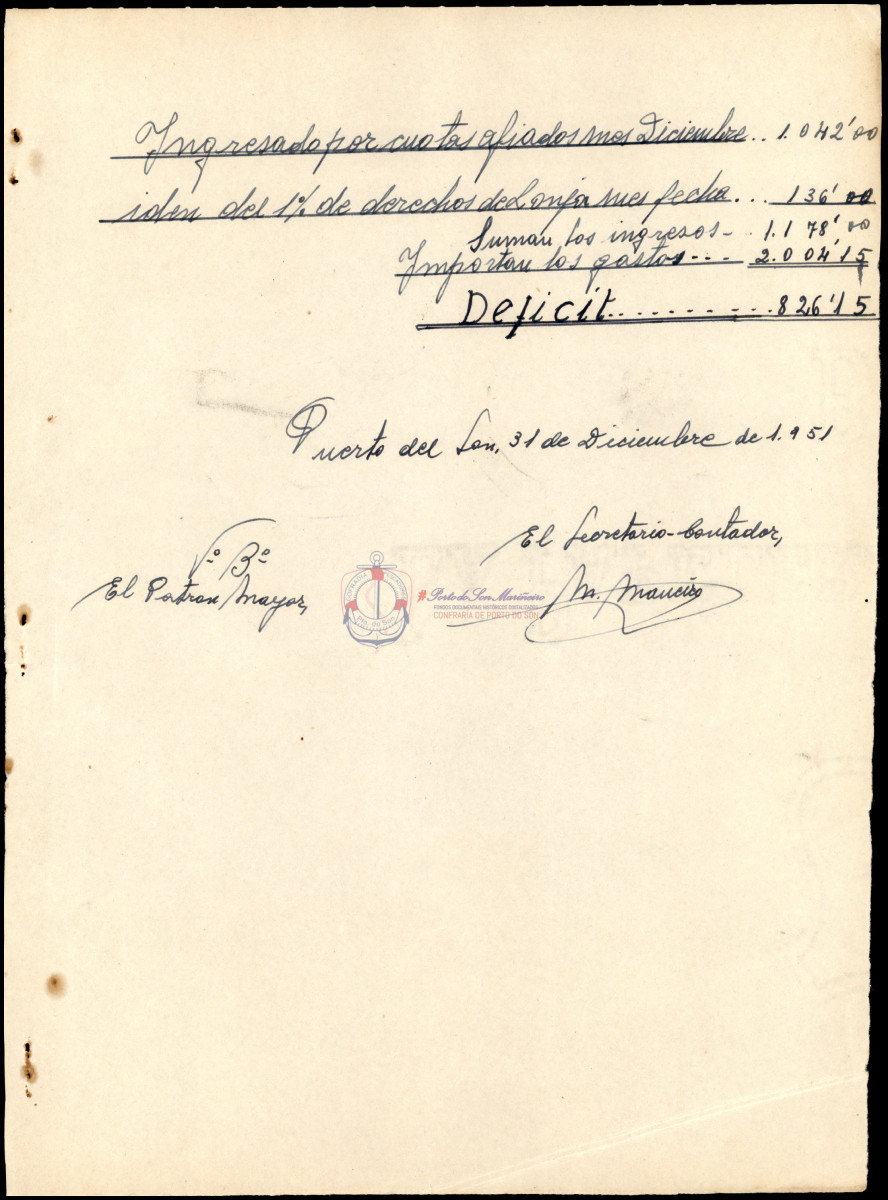 Ingresado por cuotas afiados mes Diciembre.. 1.042'00
iden del 1% de derechos de Lonja mes fecha... 136'00
Suman los ingresos-. 1.178'00
Importan los gastos--- 2.004'15
Deficit........---.826'15
Puerto del Son, 31 de Diciembre de 1.951
El Secretario-Contador,
Vº Bº
El Patron Mayor,
M. Maneiro
COFRADIA
Pto. do Son
#Porto do Son Mariñeiro
FONDOS DOCUMENTAIS HISTÓRICOS DIGITALIZADOS
CONFRARÍA DE PORTO DO SON